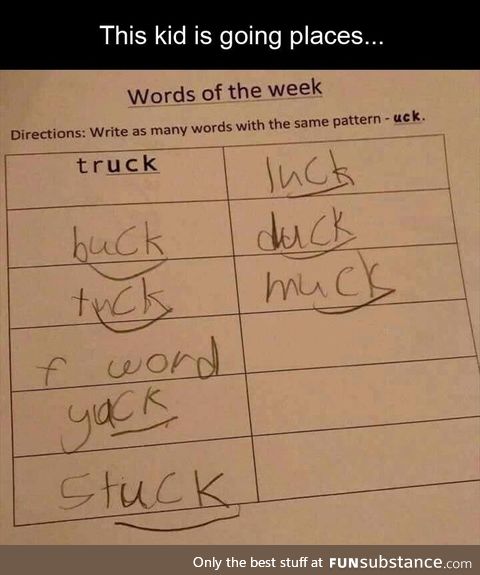 This kid is going places...
Words of the week
Directions: Write as many words with the same pattern - uck.
truck
luck
buck
duck
tuck
muck
f word
yuck
stuck
Only the best stuff at FUNsubstance.com